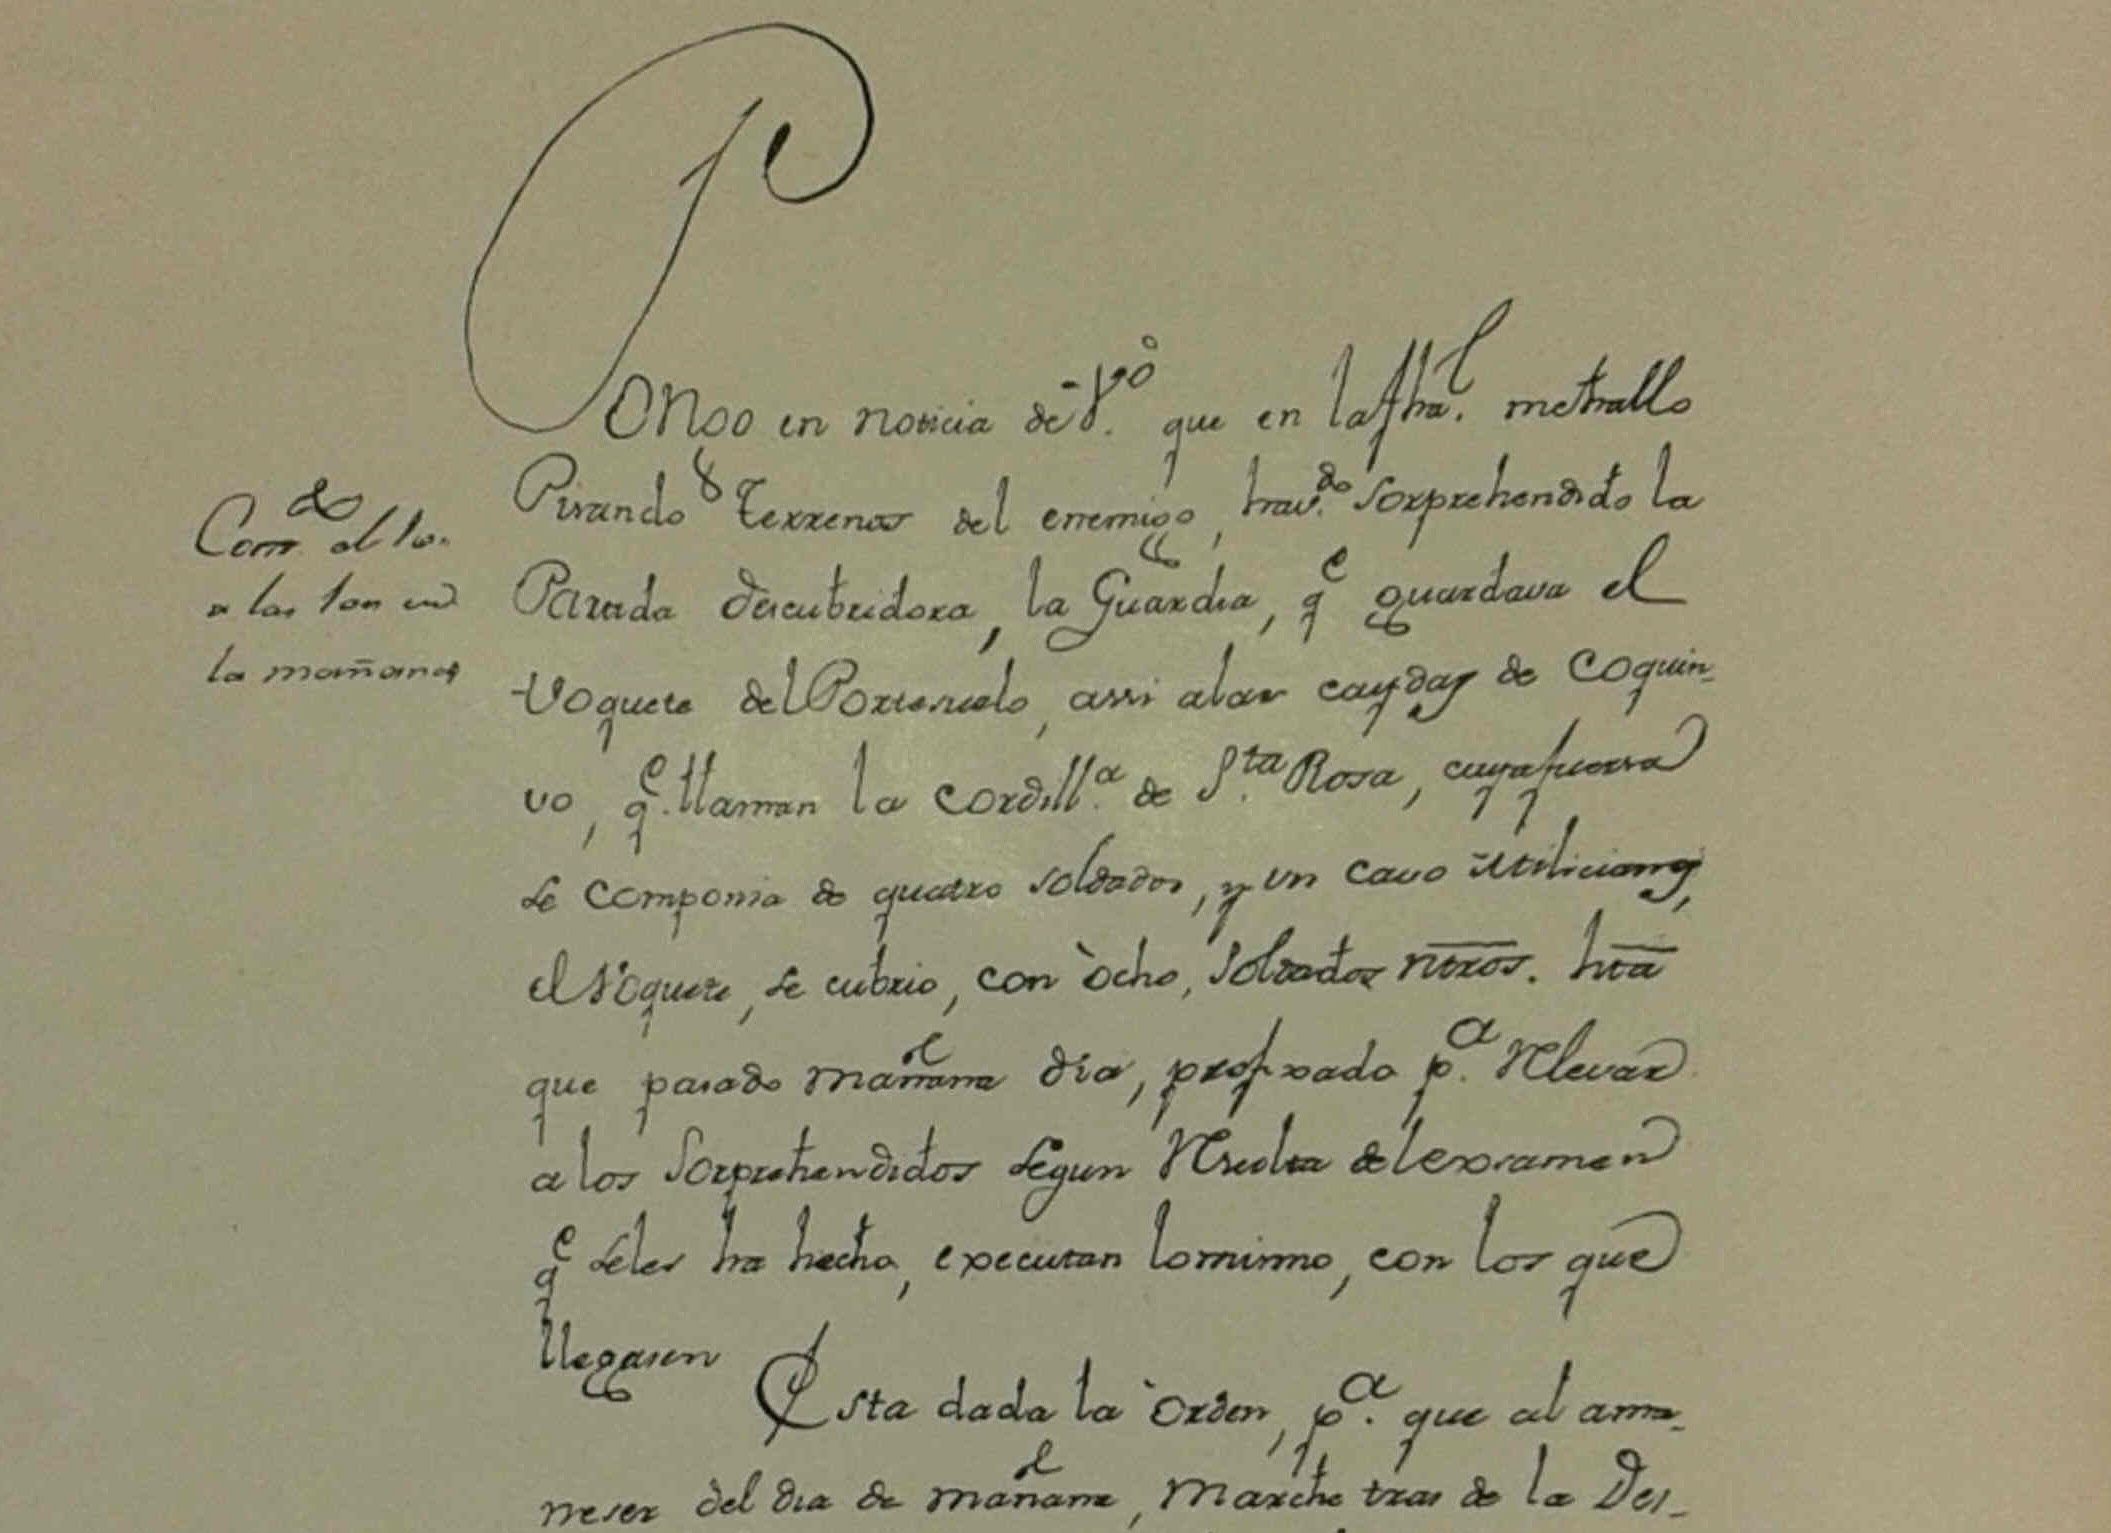 Pongo en noticia de V. que en la ftha. me hallo
Pisando Terrenos del enemigo, hav.do sorprehendido la
Parada descubridora, la Guardia, q.e guardava el
Boquete del Portesuelo, assi alas caydas de Coquin-
vo, q.e llaman la Cordill.a de S.ta Rosa, cuya fuerza
se componia de quatro soldados, y un cavo
el Boquete, se cubrio, con ocho, soldados ntros. hta
que pasado mañana dia, prefixado p.a Relevar
a los Sorprehendidos segun Resulta del examen
q.e seles ha hecho, executan lo mismo, con los que
llegasen
Esta dada la orden, p.a que al ama-
neser del dia de mañana, Marche tras de la Des-
a las
la mañana